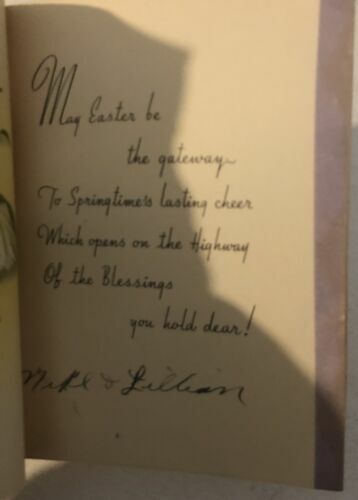 May Easter be
the gateway~
To Springtime's lasting cheer
Which opens on the Highway
Of the Blessings
you hold dear!
Mike & Lillian